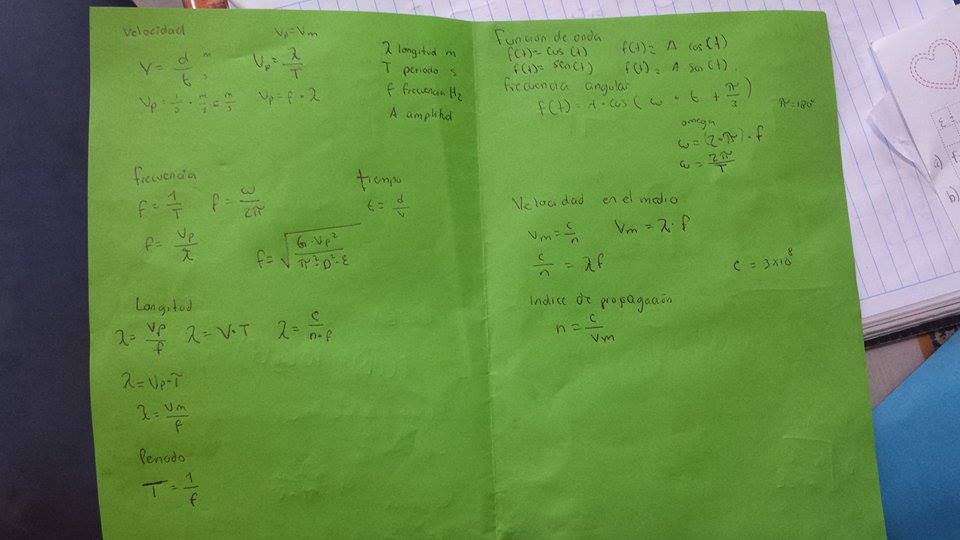 Velocidad Vp=Vm
V = d/t m/s Vp = λ/T
Vp = 1/s · m/s = m/s Vp = f · λ
λ longitud m
T periodo s
f frecuencia Hz
A amplitud
frecuencia
f = 1/T f = ω/2π
f = Vp/λ
tiempo
t = d/v
f = √(G·Vp²/π²·D²·ε)
Longitud
λ = Vp/f λ = V·T λ = c/n·f
λ = Vp·T
λ = Vm/f
Periodo
T = 1/f
Funcion de onda
f(t)= cos(t) f(t)= A cos(t)
f(t)= sen(t) f(t)= A sen(t)
frecuencia angular
f(t)= A · cos(ω · t + π/3) π=180°
omega
ω = (2·π)·f
ω = 2π/T
Velocidad en el medio
Vm = c/n Vm = λ·f
c/n = λf c = 3x10⁸
Indice de propagación
n = c/Vm
a)
b)